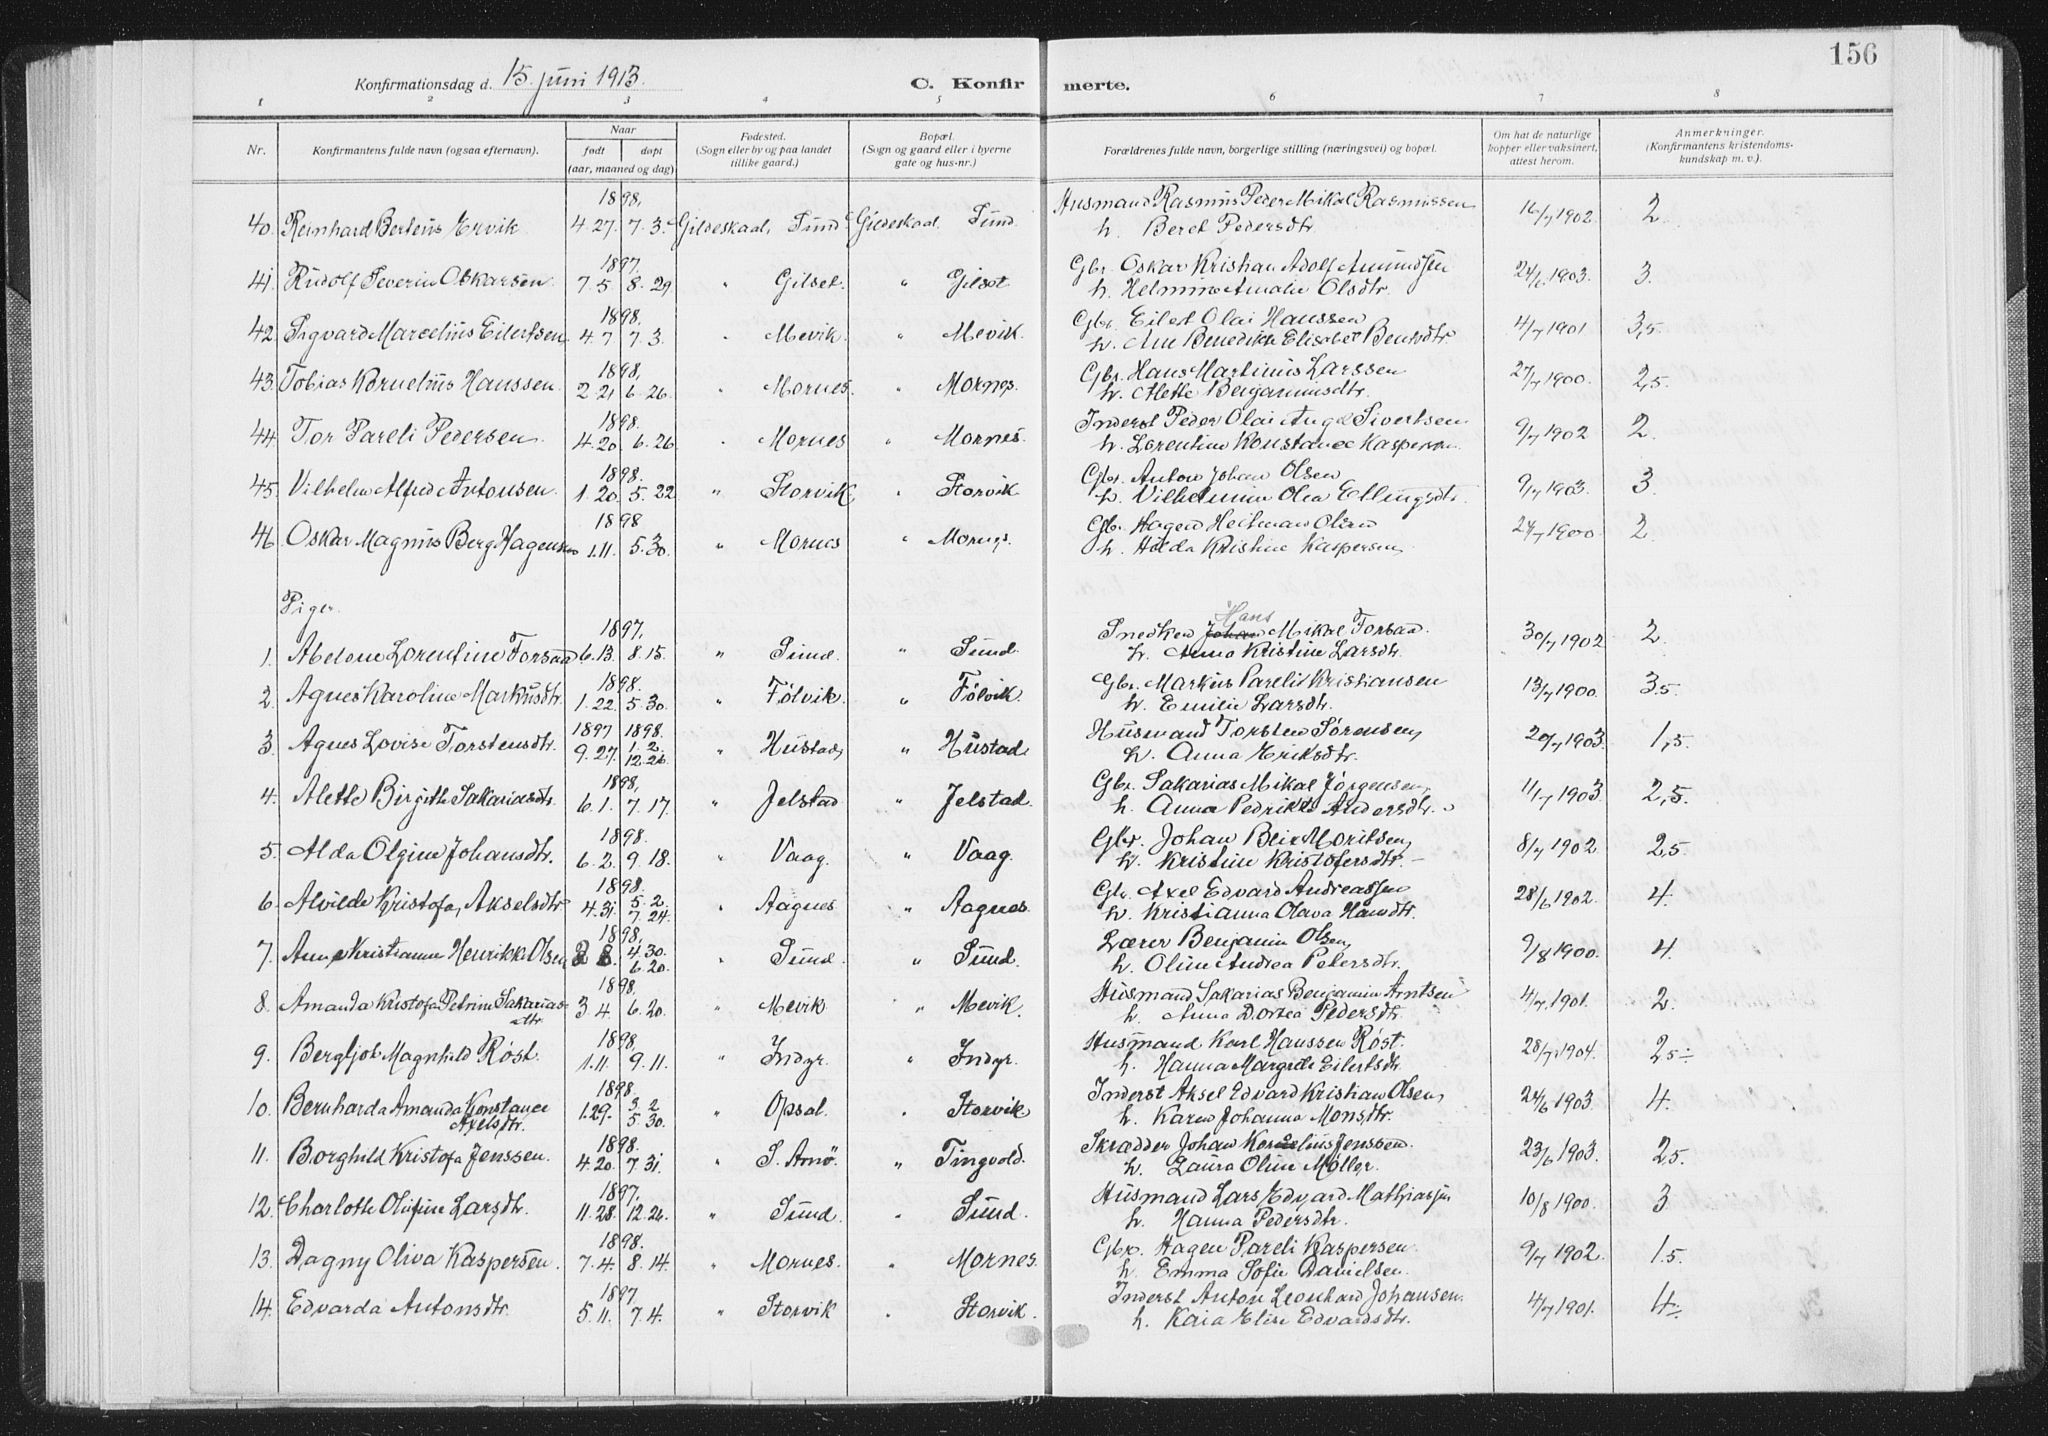 156
Konfirmationsdag d. 15. juni 1913.
C. Konfirmerte.
1 2 3 4 5 6 7 8
Nr. Konfirmantens fulde navn (ogsaa efternavn). Naar født døpt (aar, maaned og dag) Fødested. (Sogn eller by og paa landet tillike gaard.) Bopæl. (Sogn og gaard eller i byerne gate og hus-nr.) Forældrenes fulde navn, borgerlige stilling (næringsvei) og bopæl. Om hat de naturlige kopper eller vaksinert, attest herom. Anmerkninger. (Konfirmantens kristendomskundskap m. v.).
1898,
40. Reinhard Berteus Ervik 4.27. 7.3. Gildeskaal, Sund Gildeskaal Sund. Husmand Rasmus Peder Mikal Rasmussen 16/7 1902. 2.
h. Beret Pedersdtr
1897.
41. Rudolf Severin Oskarsen 7.5 8.29 " Gilset. " Gilset Gbr. Oskar Kristian Adolf Amundsen 24/6 1903. 3.
h. Helmine Amalie Olsdtr.
1898,
42. Sigvard Marcelius Eilertsen 4.7 7.3. " Mevik. " Mevik. Gbr. Eilert Olai Hanssen 4/7 1901 3,5.
h. Ane Benedikte Elisabet Bentsdtr
1898,
43. Tobias Kornelius Hanssen. 2.21 6.26. " Mornes. " Mornes. Gbr. Hans Martinus Larssen 27/7 1900. 2,5.
h. Alette Benjaminsdtr.
1898.
44. Tor Pareli Pedersen 4.20. 6.26. " Mornes " Mornes. Inderst Peder Olai Angel Sivertsen 9/7 1902 2.
h. Lorentine Konstance Kaspersen
1898.
45. Vilhelm Alfred Antonsen. 1.20. 5.22 " Storvik " Storvik Gbr. Anton Johan Olsen 9/7 1903. 3.
h. Vilhelmine Olea Ellingsdtr.
1898
46. Oskar Magnus Berg Hagensen 1.11. 5.30. " Mornes " Mornes. Gbr. Hagen Heitman Olsen 24/7 1900. 2.
h. Hilda Kristine Kaspersen
Piger.
1897. Hans
1. Abelone Lorentine Forsaa 6.13. 8.15. " Sund. " Sund. Snedker Johan Mikal Forsaa. 30/7 1902 2.
h. Anna Kristine Larsdtr.
1898.
2. Agnes Karoline Markusdtr. 1.22. 5.30. " Følvik. " Følvik. Gbr. Markus Pareli Kristiansen 13/7 1900. 3.5.
h. Emilie Larsdtr.
1897 1898.
3. Agnes Lovise Torstensdtr. 9.27. 1.2. 12.26 " Hustad, " Hustad. Husmand Torsten Sørensen, 20/7 1903. 1,5.
h. Anna Eriksdtr.
1898,
4. Alette Birgitte Sakariasdtr. 6.1. 7.17. " Jelstad " Jelstad. Gbr. Sakarias Mikal Jørgensen, 11/7 1903. 2,5.
h. Anna Pedrikke Andersdtr.
1898.
5. Alda Olgine Johansdtr. 6.2. 9.18. " Vaag. " Vaag. Gbr. Johan Blix Moritsen, 8/7 1902. 2,5.
h. Kristine Kristofersdtr.
1898.
6. Alvilde Kristofa, Akselsdtr 4.31. 5.2 7.24. " Aagnes " Aagnes. Gbr. Axel Edvard Andreassen 28/6 1902. 4.
h. Kristianna Olava Hansdtr.
1898,
7. Anne Kristianne Henrikke Olsen 2.8. 4.30. 6.20. " Sund. " Sund. Lærer Benjamin Olsen, 9/8 1900. 4.
h. Oline Andrea Petersdtr.
1898.
8. Amanda Kristofa Petrine Sakarias- 3.4. 6.20. " Mevik " Mevik. Husmand Sakarias Benjamin Arntsen 4/7 1901. 2.
dtr h. Anna Dortea Pedersdtr.
1898,
9. Bergljot Magnhild Røst. 1.11. 9.11. " Indyr. " Indyr. Husmand Karl Hanssen Røst. 28/7 1904. 2,5÷
h. Hanna Margrete Eilertsdtr.
1898.
10. Bernharda Amanda Konstance 1.29. 3.2 5.30. " Opsal. " Storvik Inderst Aksel Edvard Kristian Olsen, 24/6 1903. 4.
Axelsdtr. h. Karen Johanna Monsdtr.
1898.
11. Borghild Kristofa Jenssen. 4.20. 7.31. " S. Arnø. " Tingvold. Skrædder Johan Kornelius Jenssen. 23/6 1903. 2,5.
h. Laura Oline Møller.
1897.
12. Charlotte Olufine Larsdtr. 11.28. 12.26. " Sund. " Sund. Husmand Lars Edvard Mathiassen 10/8 1900. 3
h. Hanna Pedersdtr.
1898.
13. Dagny Oliva Kaspersen. 7.4. 8.14. " Mornes. " Mornes. Gbr. Hagen Pareli Kaspersen. 9/7 1902. 1.5.
h. Emma Sofie Danielsen.
1897.
14. Edvarda Antonsdtr. 5.11. 7.4. " Storvik " Storvik. Inderst Anton Leonhard Johansen. 4/7 1901. 4÷
h. Kaia Elise Edvardsdtr.